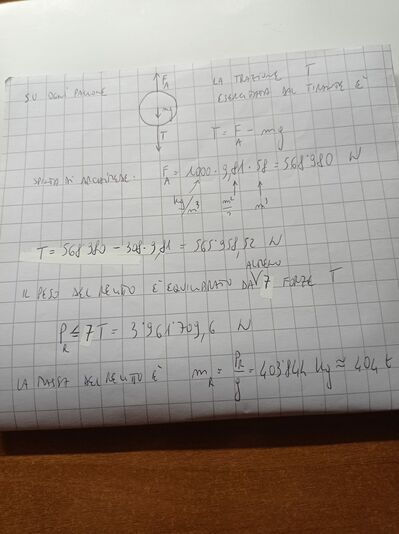 SU OGNI PALLONE
F_A
mg
T
LA TRAZIONE T
ESERCITATA DAL TIRANTE E'
T = F_A - mg
SPINTA DI ARCHIMEDE: F_A = 1000 · 9,81 · 58 = 568'980 N
kg/m³ m/s² m³
T = 568 980 - 308 · 9,81 = 565'958,52 N
IL PESO DEL RELITTO E' EQUILIBRATO DA ALMENO 7 FORZE T
P_R ≤ 7T = 3'961'709,6 N
LA MASSA DEL RELITTO E' m_R = P_R/g = 403'844 kg ≈ 404 t